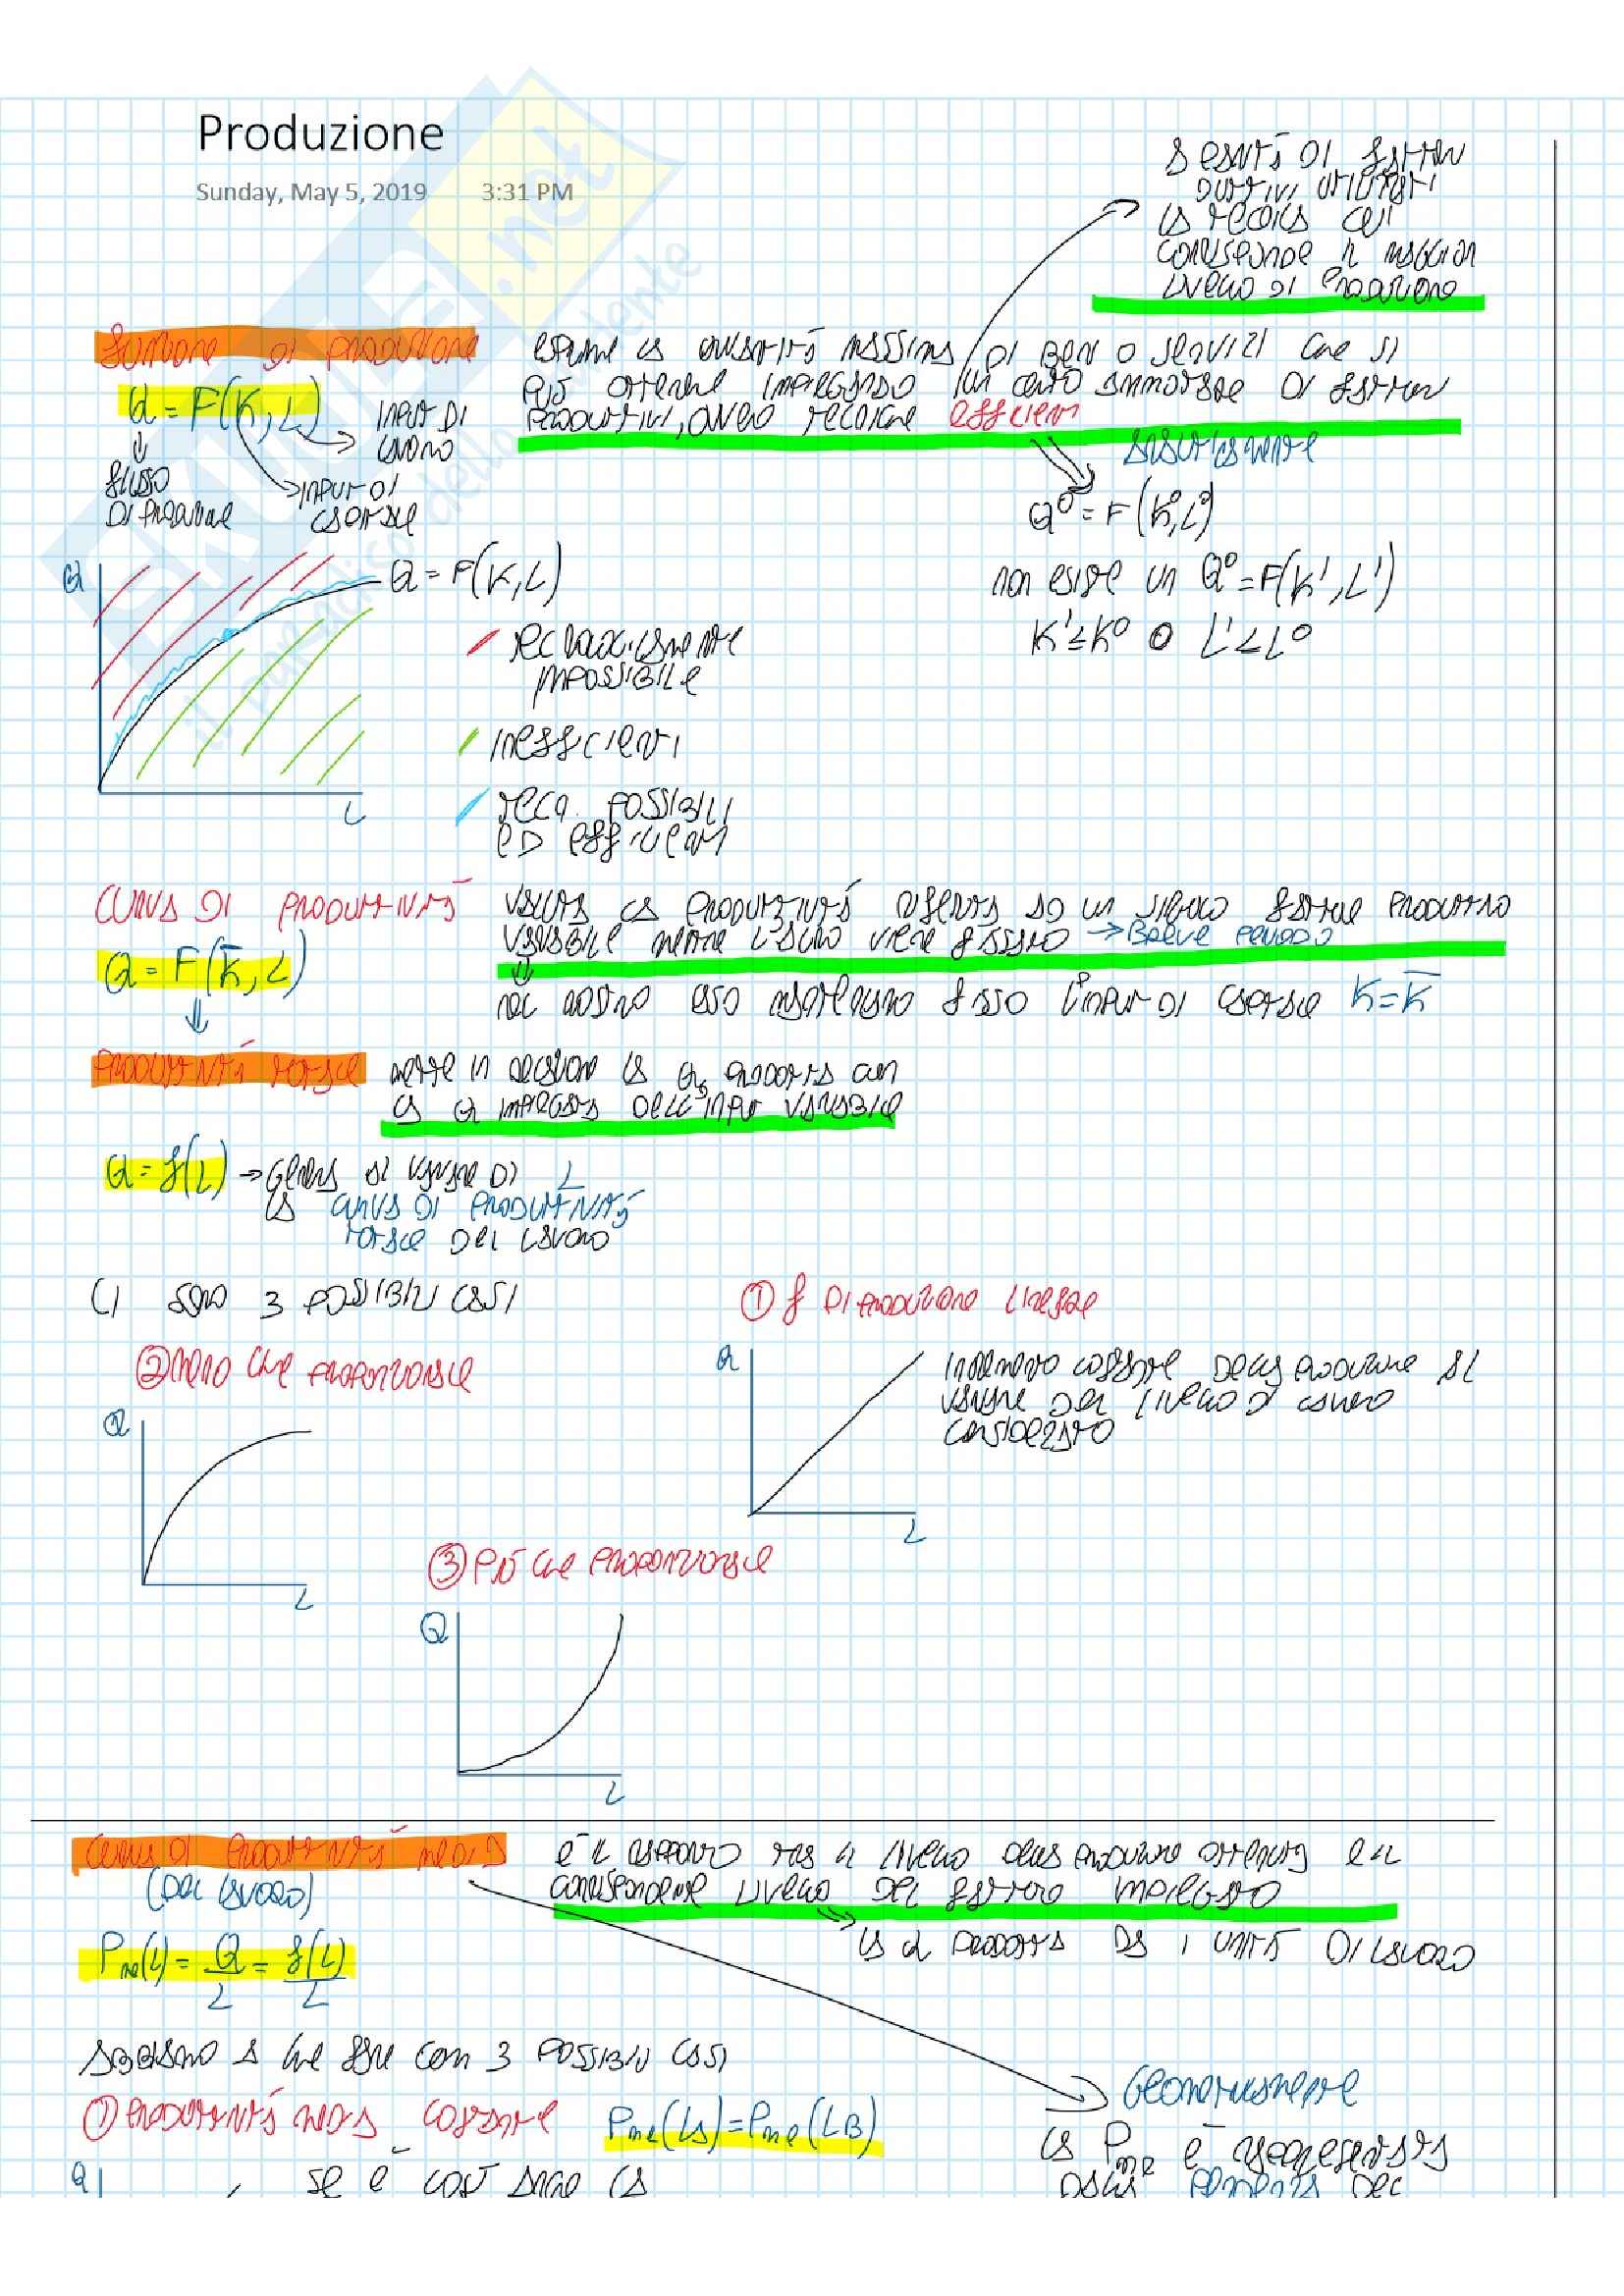 Produzione
Sunday, May 5, 2019 3:31 PM
A PARITÀ DI FATTORI
PRODUTTIVI UTILIZZATI
LA TECNICA CUI
CORRISPONDE IL MAGGIOR
LIVELLO DI PRODUZIONE
FUNZIONE DI PRODUZIONE
ESPRIME LA QUANTITÀ MASSIMA DI BENI O SERVIZI CHE SI
PUÒ OTTENERE IMPIEGANDO UN CERTO AMMONTARE DI FATTORI
PRODUTTIVI, DATE TECNICHE EFFICIENTI
Q = F(K, L)
INPUT DI
LAVORO
FLUSSO
DI PRODUZIONE
INPUT DI
CAPITALE
ANALITICAMENTE
Q⁰ = F(K⁰, L⁰)
NON ESISTE UN Q⁰ = F(K', L')
K' ≤ K⁰ O L' < L⁰
Q
Q = F(K, L)
TECNOLOGICAMENTE
IMPOSSIBILE
INEFFICIENTI
TECN. POSSIBILI
ED EFFICIENTI
L
CURVA DI PRODUTTIVITÀ
VALUTA LA PRODUTTIVITÀ RIFERITA AD UN SINGOLO FATTORE PRODUTTIVO
VARIABILE MENTRE L'ALTRO VIENE FISSATO → BREVE PERIODO
Q = F(K̄, L)
NEL NOSTRO CASO MANTENIAMO FISSO L'INPUT DI CAPITALE K = K̄
PRODUTTIVITÀ TOTALE
METTE IN RELAZIONE LA Q PRODOTTA CON
LA Q IMPIEGATA DELL'INPUT VARIABILE
Q = f(L) → GENERA AL VARIARE DI L
LA CURVA DI PRODUTTIVITÀ
TOTALE DEL LAVORO
CI SONO 3 POSSIBILI CASI
① f DI PRODUZIONE LINEARE
② MENO CHE PROPORZIONALE
Q
INCREMENTO COSTANTE DELLA PRODUZIONE AL
VARIARE DEL LIVELLO DI LAVORO
CONSIDERATO
L
Q
L
③ PIÙ CHE PROPORZIONALE
Q
L
CURVA DI PRODUTTIVITÀ MEDIA
(DEL LAVORO)
È IL RAPPORTO TRA IL LIVELLO DELLA PRODUZIONE OTTENUTA E IL
CORRISPONDENTE LIVELLO DEL FATTORE IMPIEGATO
LA Q PRODOTTA DA 1 UNITÀ DI LAVORO
Pme(L) = Q/L = f(L)/L
ABBIAMO A CHE FARE CON 3 POSSIBILI CASI
GEOMETRICAMENTE
① PRODUTTIVITÀ MEDIA COSTANTE Pme(LA) = Pme(LB)
LA Pme È RAPPRESENTATA
DALLA PENDENZA DEL
Q
SE È COSÌ ANCHE LA